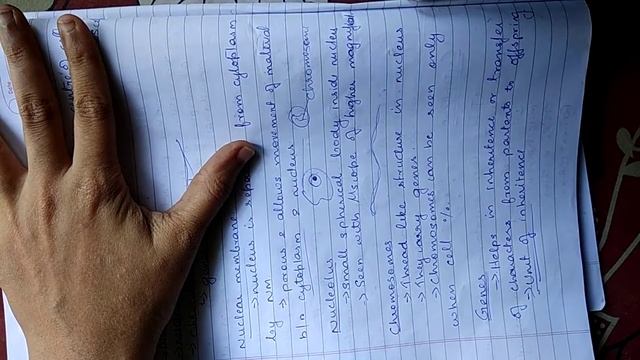 Nuclear membrane
→ nucleus is separ from cytoplasm
by NM
→ porous & allows movement of material
b/n cytoplasm & nucleus
chromosom
Nucleolus
→ Small spherical body inside nucleus
→ Seen with Mscope of higher magnifi
Chromosomes
→ Thread like structure in nucleus
→ They carry genes.
→ Chromosomes can be seen only
when cell ·/·
Genes
→ Helps in inheritence or transfer
of characters from partents to offspring
→ Unit of inheritence